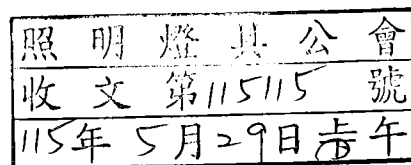 照明燈具公會
收文第115115號
115年5月29日上午